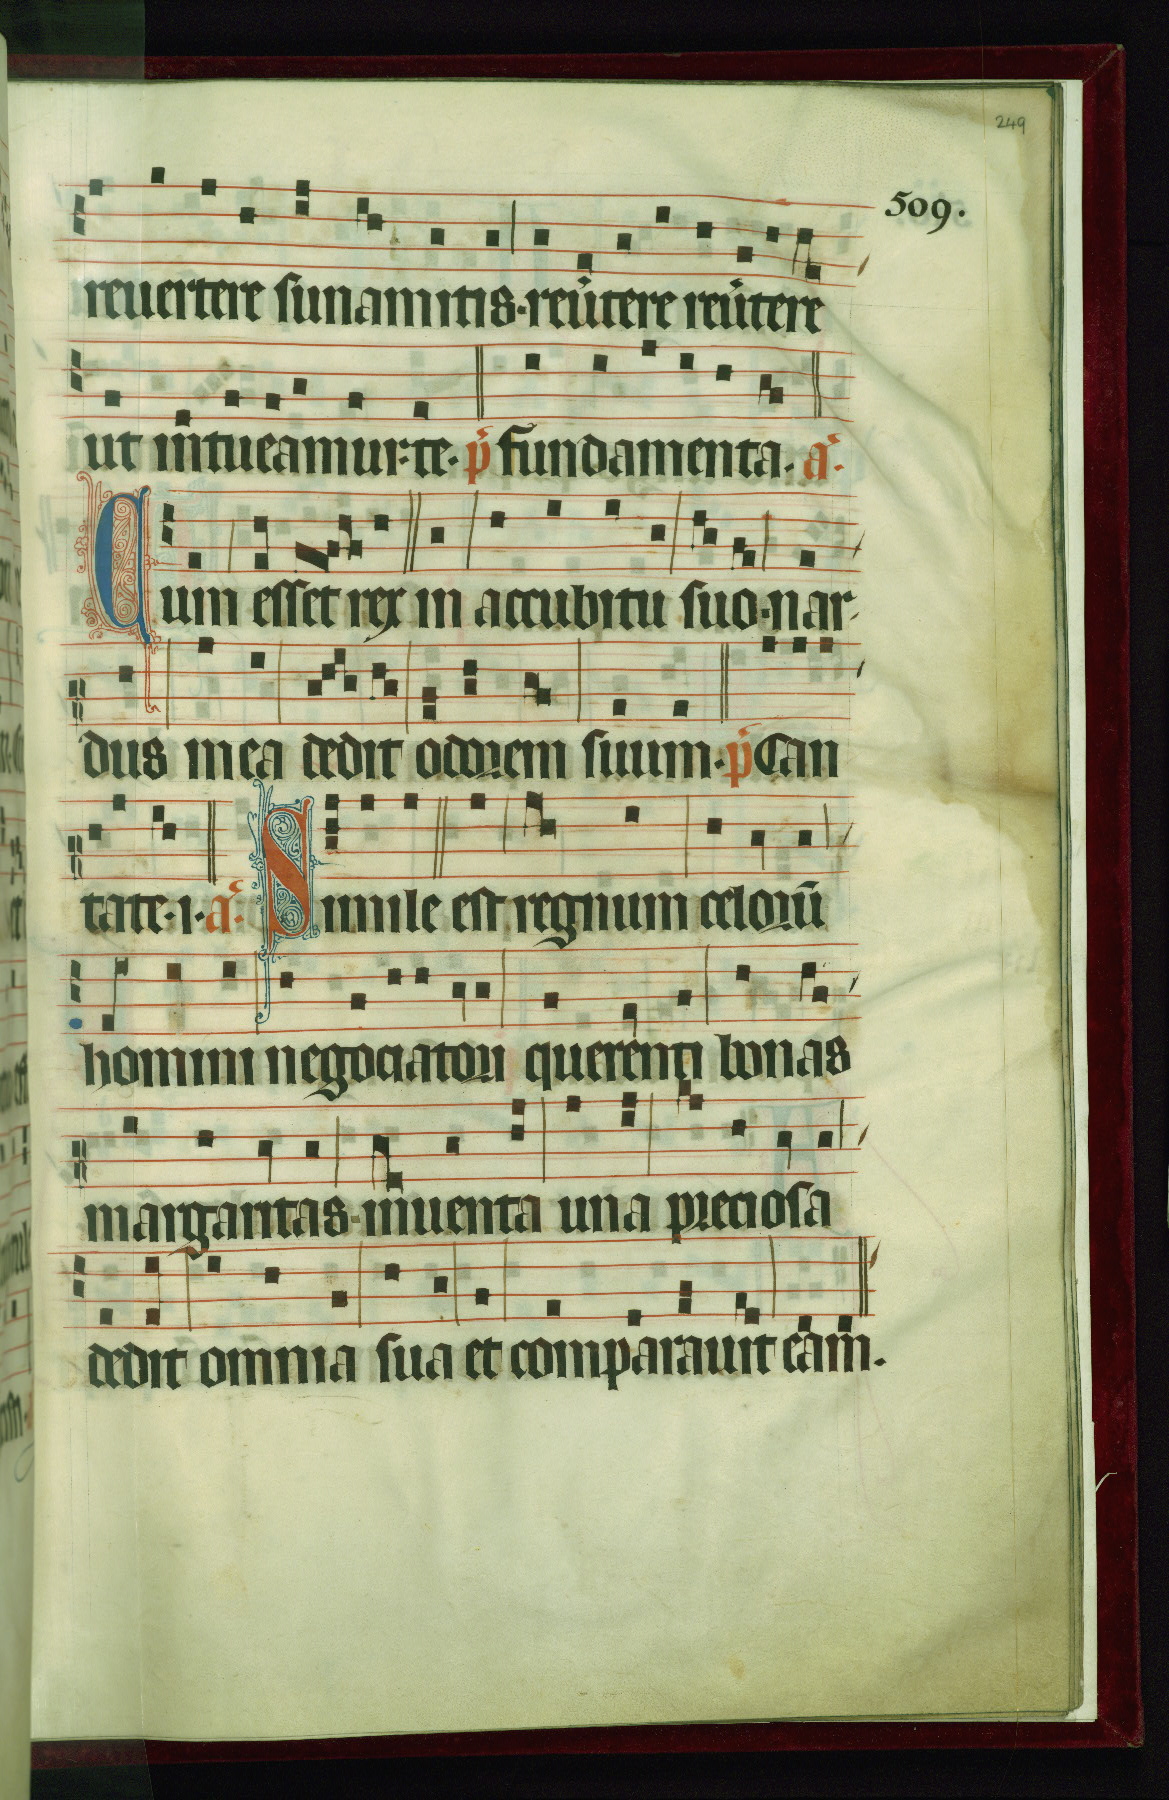 249
509.
reuertere sunamitis·reu̾tere reu̾tere
ut intueamur·te· p̾ fundamenta· a̾·
Cum esset rex in accubitu suo·nar
dus mea dedit odorem suum· p̾ Can
tate·i· a̾· Simile est regnum celorū
homini negociatori querenti bonas
margaritas·inuenta una preciosa
dedit omnia sua et comparauit eam.